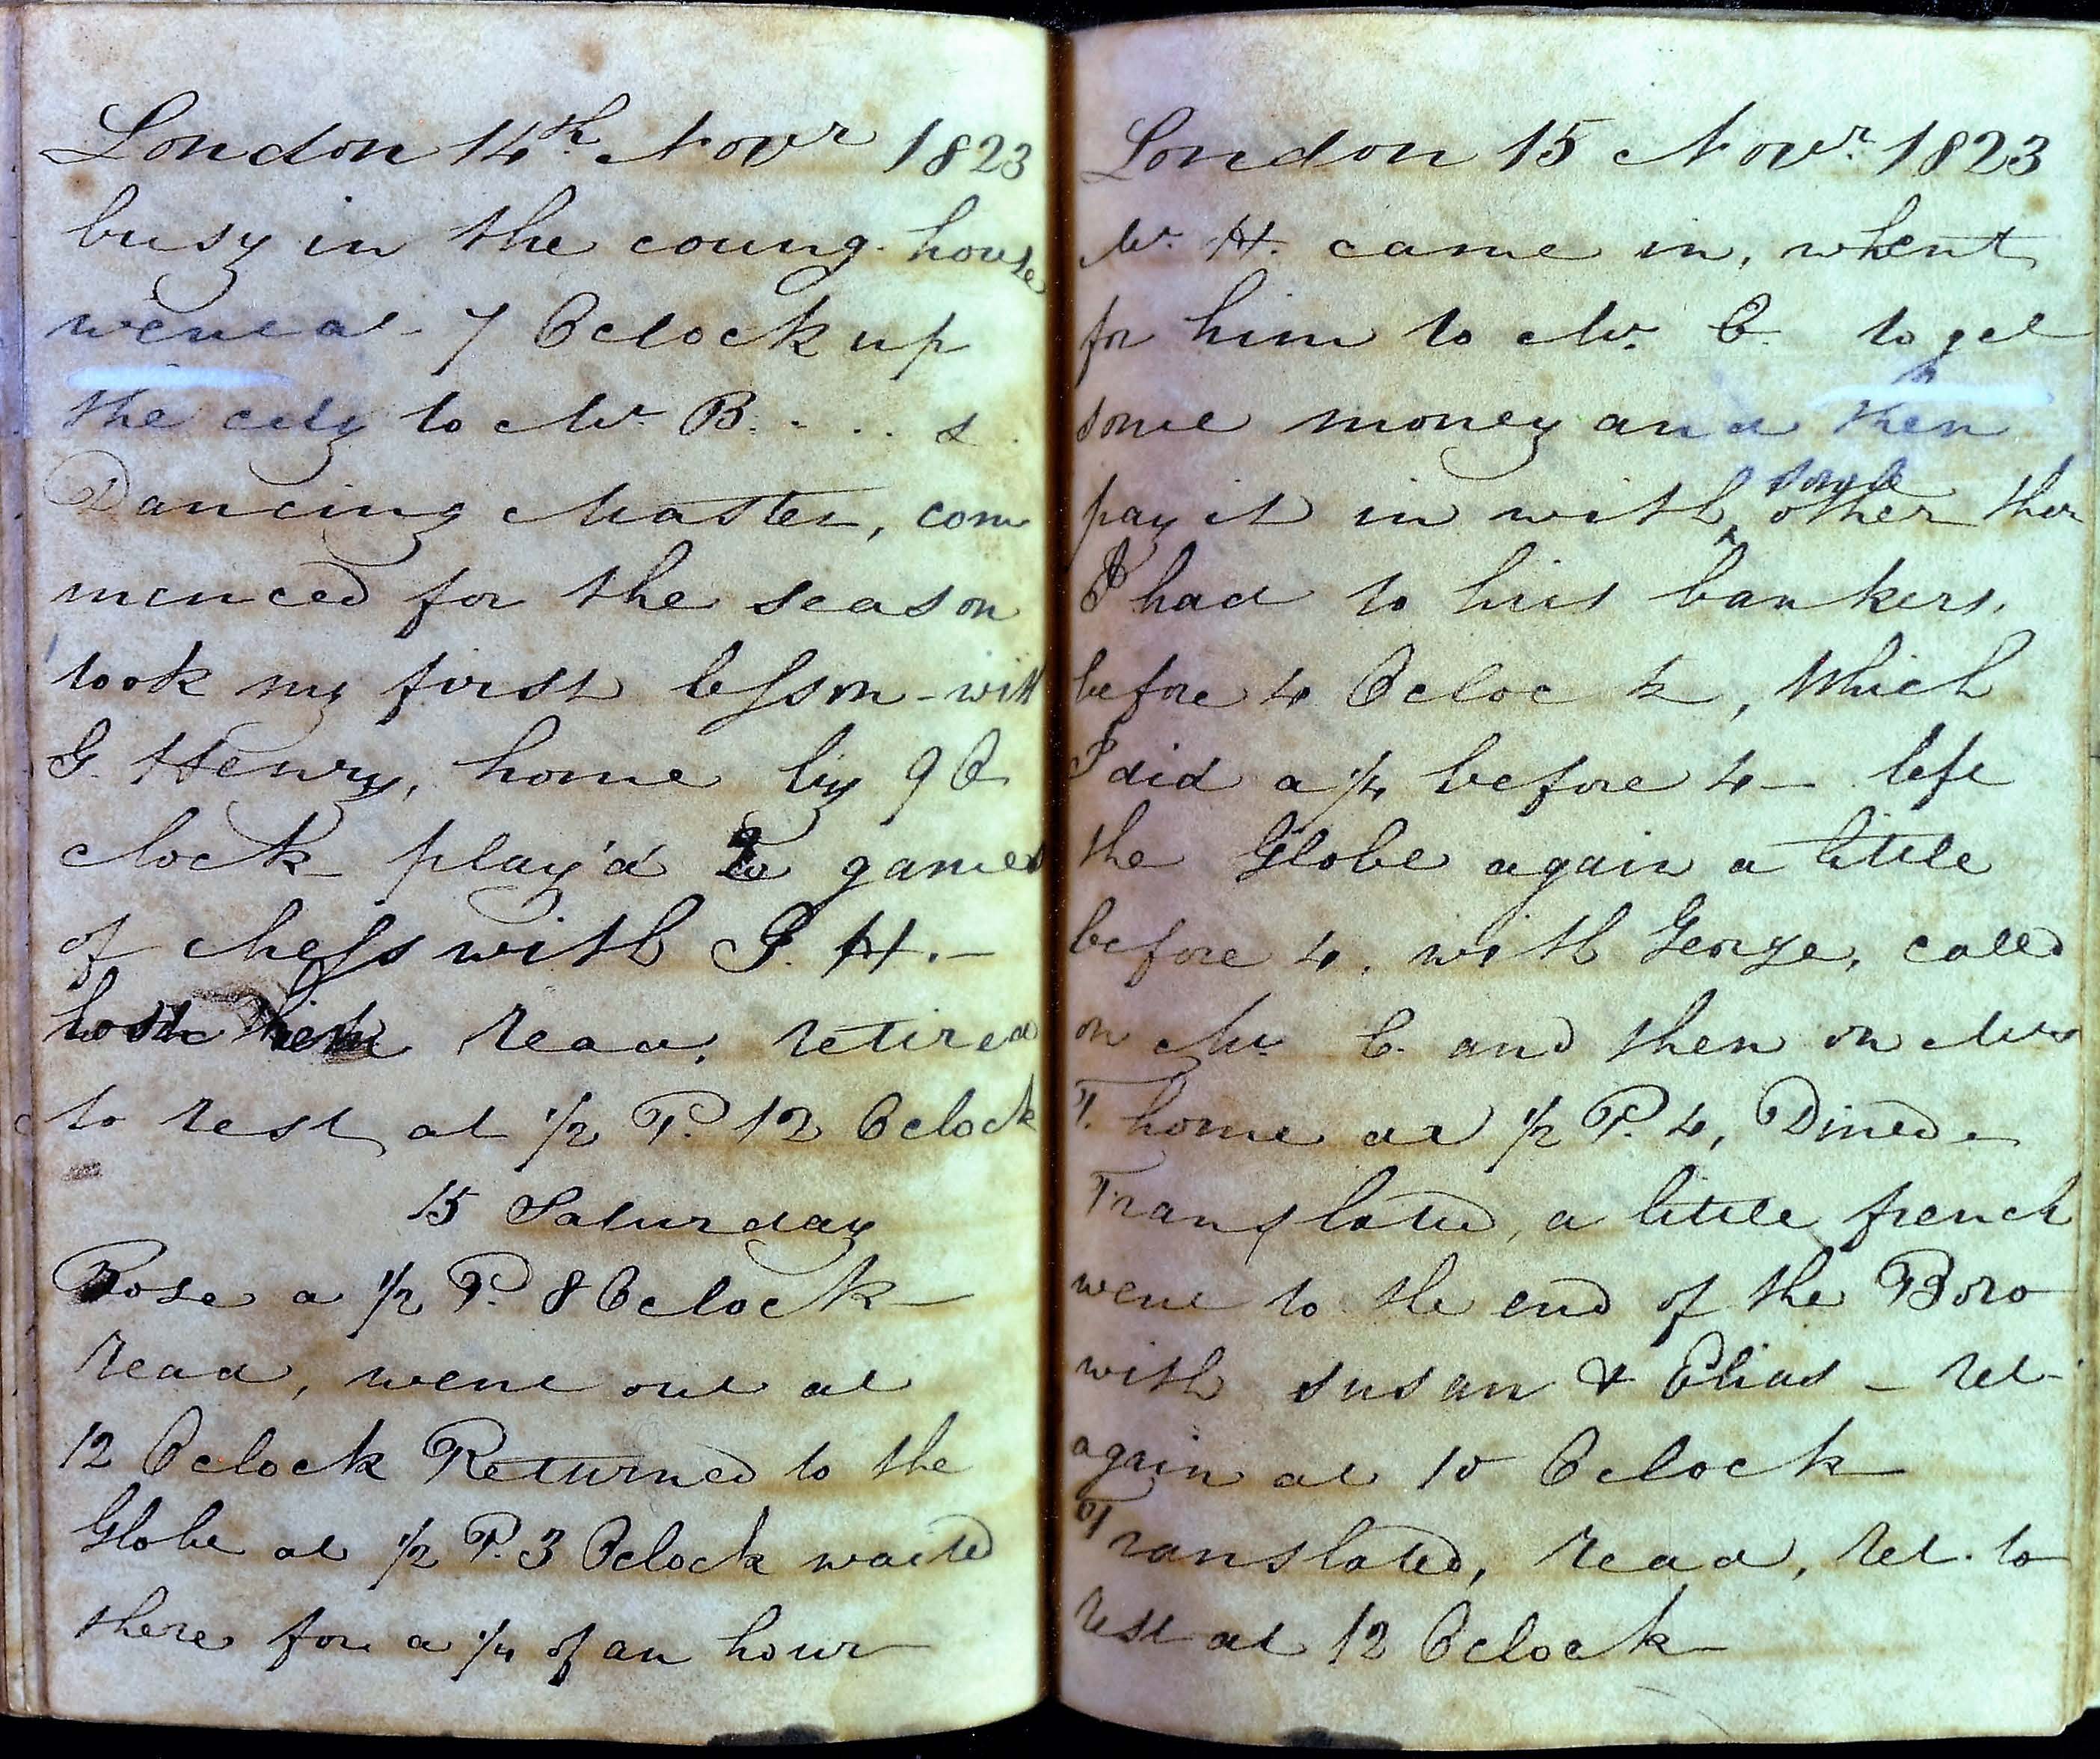 London 14th Novr 1823
busy in the coung house
went at 7 Oclock up
the city to Mr B.... s.
Dancing Master, com
menced for the season
took my first lesson - with
G. Henry, home by 9 O
clock play'd 2 games
of chess with J. H. -
lost them read, retired
to rest at 1/2 P. 12 Oclock
15 Saturday
Rose a 1/2 P. 8 Oclock
read, went out at
12 Oclock Returned to the
Globe at 1/2 P. 3 Oclock waited
there for a 1/4 of an hour
London 15 Novr. 1823
Mr. H. came in, whent
for him to Mr. C. to get
some money and then
pay it in with some other that
I had to his bankers,
before 4 Oclock, Which
I did a 1/4 before 4 - left
the Globe again a little
before 4, with George, called
on Mr. C. and then on Mrs
T. home at 1/2 P. 4, Dined
Translated, a little french
went to the end of the Boro
with susan & Elias - ret.
again at 10 Oclock
Translated, read, ret. to
rest at 12 Oclock